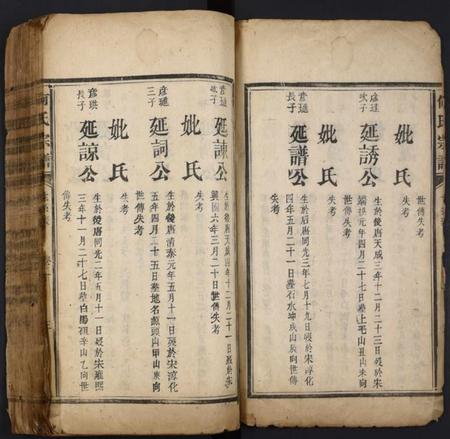 何氏宗譜
妣氏
世傳失考
彥璉
次子
延誘公
生於後唐天成三年十二月二十三日歿於宋
端拱元年四月二十七日塟上毛山丑山未向
世傳失考
妣氏
失考
長子
延譜公
生於后唐同光三年七月十九日歿於宋淳化
四年五月二日塟石水坤戌山辰向世傳
失考
次子
延諫公
生於後唐天成四年十二月二十一日歿於宋太平
興國六年三月二十日世傳失考
妣氏
失考
彥璉
三子
延詞公
生於後唐清泰元年五月十一日歿於宋淳化
五年四月三十五日塟地名源頭山甲山庚向
世傳失考
妣氏
失考
彥琪
長子
延諒公
生於後唐同光二年五月十一日歿於宋雍熙
三年十一月二十七日塟白陽嶺辛山乙向世
傳失考
何氏宗譜